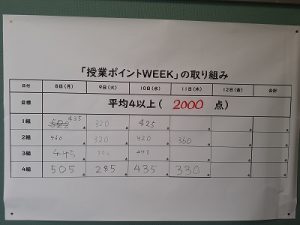 「授業ポイントWEEK」の取り組み
日付 8日(月) 9日(火) 10日(水) 11日(木) 12日(金) 合計
目標 平均4以上( 2000 点)
1組 435 320 425
2組 320 420 360
3組 445
4組 505 285 435 330